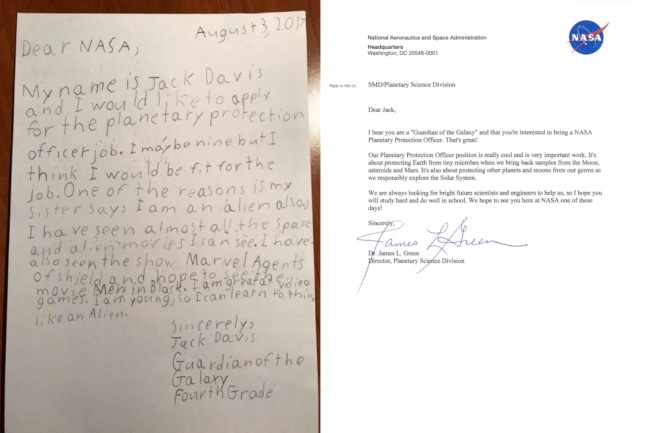 August 3, 2017
Dear NASA,
My name is Jack Davis
and I would like to apply
for the planetary protection
officer job. I may be nine but I
think I would be fit for the
job. One of the reasons is my
sister says I am an alien also,
I have seen almost all the space
and alien movies I can see. I have
also seen the show Marvel Agents
of Shield and hope to see the
movie Men in Black. I am great at vdieo
games. I am young, so I can learn to think
like an Alien.
Sincerely,
Jack Davis
Guardian of the
Galaxy
Fourth Grade
National Aeronautics and Space Administration
Headquarters
Washington, DC 20546-0001
NASA
Reply to Attn of:
SMD/Planetary Science Division
Dear Jack,
I hear you are a "Guardian of the Galaxy" and that you're interested in being a NASA
Planetary Protection Officer. That's great!
Our Planetary Protection Officer position is really cool and is very important work. It's
about protecting Earth from tiny microbes when we bring back samples from the Moon,
asteroids and Mars. It's also about protecting other planets and moons from our germs as
we responsibly explore the Solar System.
We are always looking for bright future scientists and engineers to help us, so I hope you
will study hard and do well in school. We hope to see you here at NASA one of these
days!
Sincerely,
James L Green
Dr. James L. Green
Director, Planetary Science Division